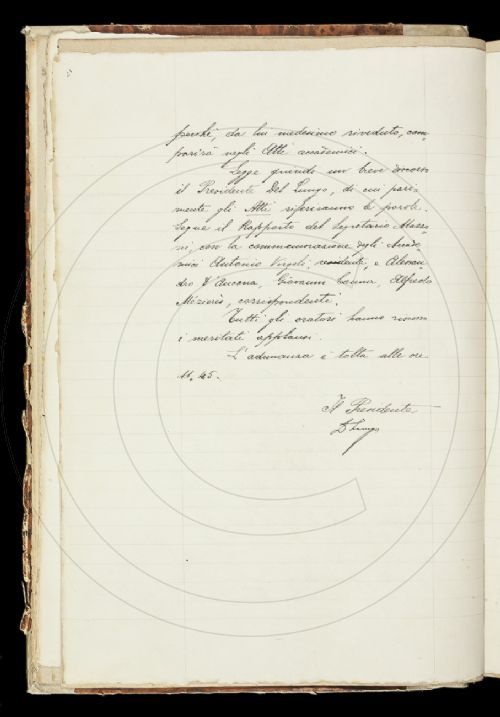 perchè, da lui medesimo riveduto, com-
parirà negli Atti accademici.
Legge quindi un breve discorso
il Presidente Del Lungo, di cui pari-
mente gli Atti riferiranno le parole.
Segue il Rapporto del Segretario Mazzo-
ni, con la commemorazione degli Accade-
mici Antonio Virgili, residente, e Alessan-
dro D'Ancona, Giovanni Canna, Alfredo
Mézières, corrispondenti.
Tutti gli oratori hanno
i meritati applausi.
L'adunanza è tolta alle ore
11,45.
Il Presidente
D Lungo